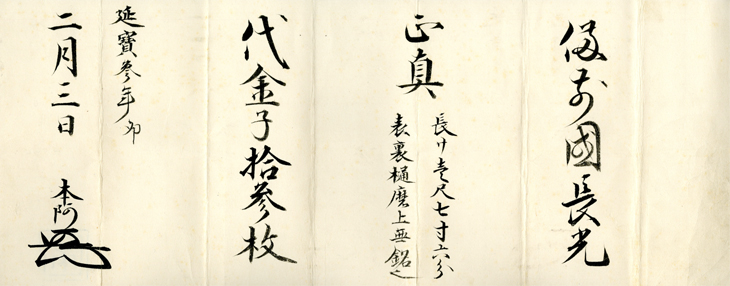 備前國長光
正真
長サ壱尺七寸六分
表裏樋磨上無銘之
代金子拾参枚
延寶参年卯
二月三日
本阿